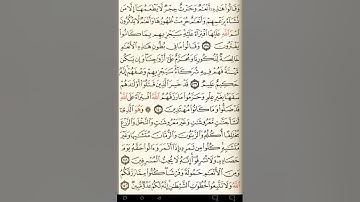 وَقَالُوا۟ هَٰذِهِۦٓ أَنْعَٰمٌ وَحَرْثٌ حِجْرٌ لَّا يَطْعَمُهَآ إِلَّا مَن
نَّشَآءُ بِزَعْمِهِمْ وَأَنْعَٰمٌ حُرِّمَتْ ظُهُورُهَا وَأَنْعَٰمٌ لَّا يَذْكُرُونَ
ٱسْمَ ٱللَّهِ عَلَيْهَا ٱفْتِرَآءً عَلَيْهِ سَيَجْزِيهِم بِمَا كَانُوا۟
يَفْتَرُونَ وَقَالُوا۟ مَا فِى بُطُونِ هَٰذِهِ ٱلْأَنْعَٰمِ
خَالِصَةٌ لِّذُكُورِنَا وَمُحَرَّمٌ عَلَىٰٓ أَزْوَٰجِنَا وَإِن يَكُن
مَّيْتَةً فَهُمْ فِيهِ شُرَكَآءُ سَيَجْزِيهِمْ وَصْفَهُمْ إِنَّهُۥ
حَكِيمٌ عَلِيمٌ قَدْ خَسِرَ ٱلَّذِينَ قَتَلُوٓا۟ أَوْلَٰدَهُمْ
سَفَهًۢا بِغَيْرِ عِلْمٍ وَحَرَّمُوا۟ مَا رَزَقَهُمُ ٱللَّهُ ٱفْتِرَآءً عَلَى ٱللَّهِ
قَدْ ضَلُّوا۟ وَمَا كَانُوا۟ مُهْتَدِينَ ۞ وَهُوَ ٱلَّذِىٓ
أَنشَأَ جَنَّٰتٍ مَّعْرُوشَٰتٍ وَغَيْرَ مَعْرُوشَٰتٍ وَٱلنَّخْلَ وَٱلزَّرْعَ
مُخْتَلِفًا أُكُلُهُۥ وَٱلزَّيْتُونَ وَٱلرُّمَّانَ مُتَشَٰبِهًا وَغَيْرَ
مُتَشَٰبِهٍ كُلُوا۟ مِن ثَمَرِهِۦٓ إِذَآ أَثْمَرَ وَءَاتُوا۟ حَقَّهُۥ يَوْمَ
حَصَادِهِۦ وَلَا تُسْرِفُوٓا۟ إِنَّهُۥ لَا يُحِبُّ ٱلْمُسْرِفِينَ
وَمِنَ ٱلْأَنْعَٰمِ حَمُولَةً وَفَرْشًا كُلُوا۟ مِمَّا رَزَقَكُمُ
ٱللَّهُ وَلَا تَتَّبِعُوا۟ خُطُوَٰتِ ٱلشَّيْطَٰنِ إِنَّهُۥ لَكُمْ عَدُوٌّ مُّبِينٌ